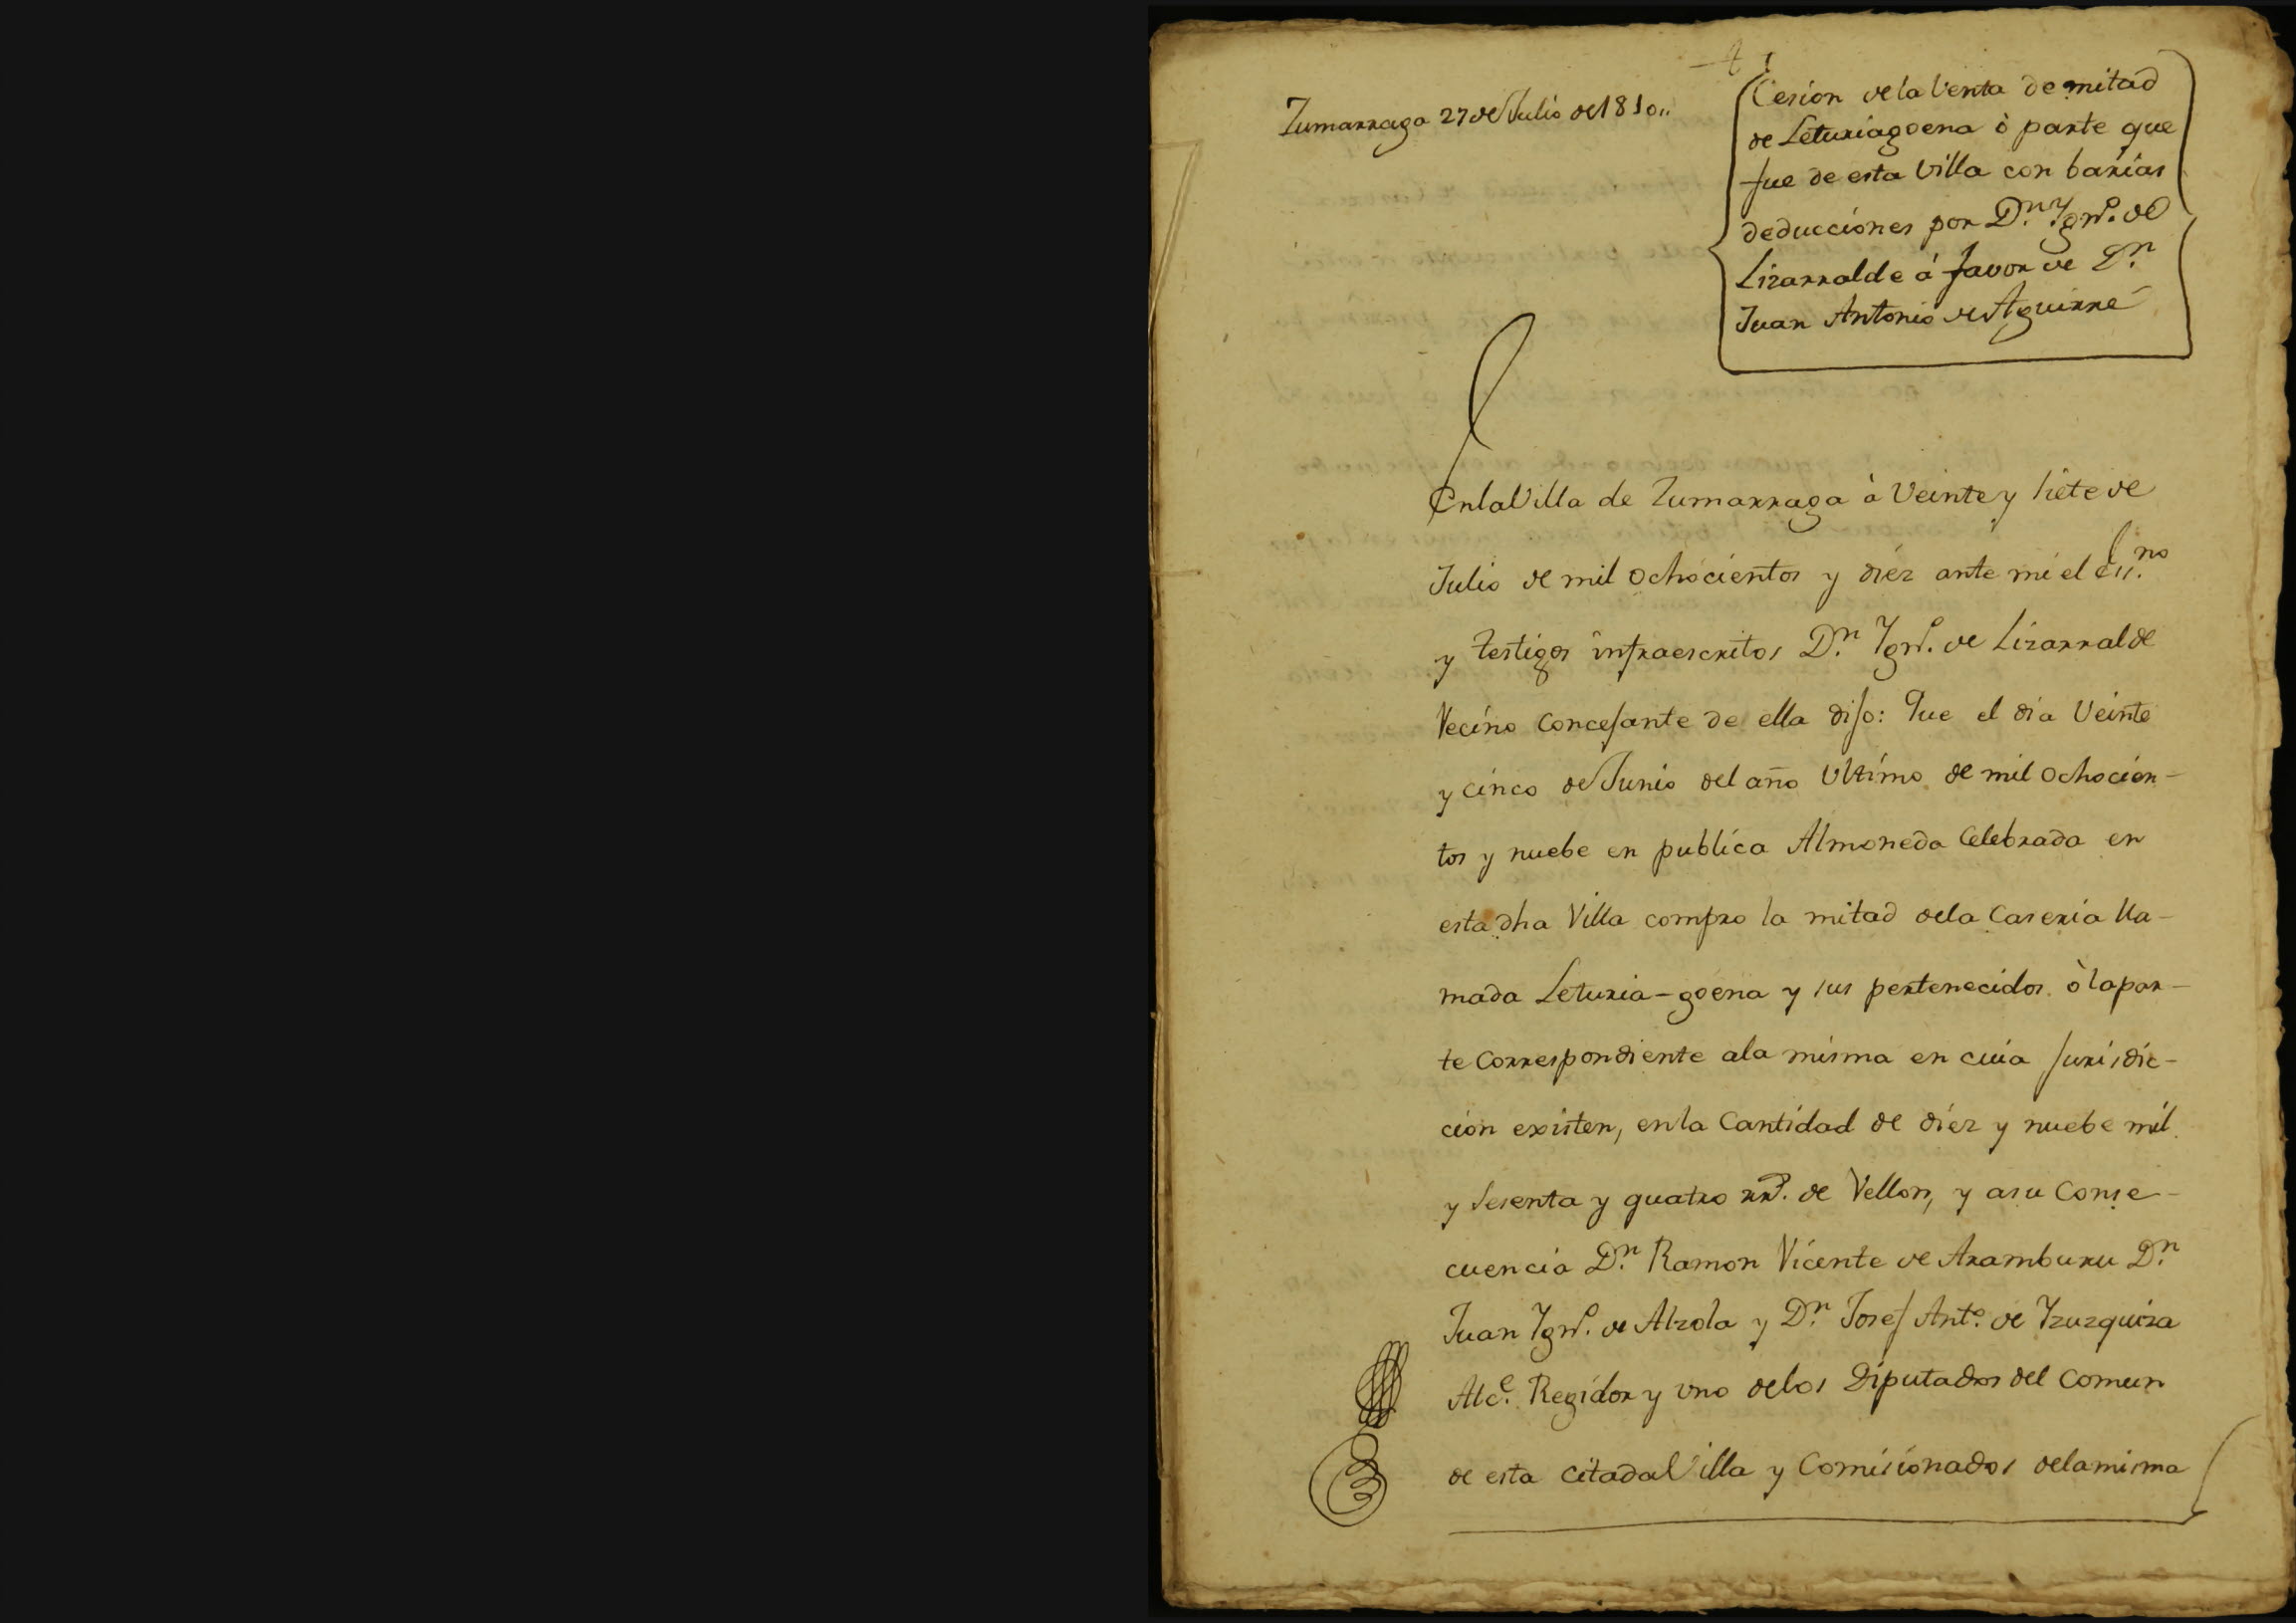 Zumarraga 27 de Julio de 1810,,
Cesion de la Venta de mitad
de Leturiagoena ò parte que
fue de esta Villa con barias
deducciones por Dn. Ygno. de
Lizarralde á favor de Dn.
Juan Antonio de Aguirre
En la Villa de Zumarraga à Veinte y siete de
Julio de mil ochocientos y diéz ante mi el Essno.
y testigos infraescritos Dn. Ygno. de Lizarralde
Vecino Concejante de ella dijo: Que el dia Veinte
y cinco de Junio del año Ultimo de mil ochocien-
tos y nuebe en publica Almoneda Celebrada en
esta dha Villa compro la mitad dela Caseria lla-
mada Leturia-goena y sus pertenecidos ò la par-
te Correspondiente ala misma en cuia Jurisdic-
cion existen, en la Cantidad de diéz y nuebe mil
y Sesenta y quatro rrs. de Vellon, y asu Conse-
cuencia Dn. Ramon Vicente de Aramburu Dn.
Juan Ygno. de Alzola y Dn. Josef Anto. de Yzuzquiza
Alce. Regidor y uno delos Diputados del Comun
de esta citada Villa y Comisionados dela misma